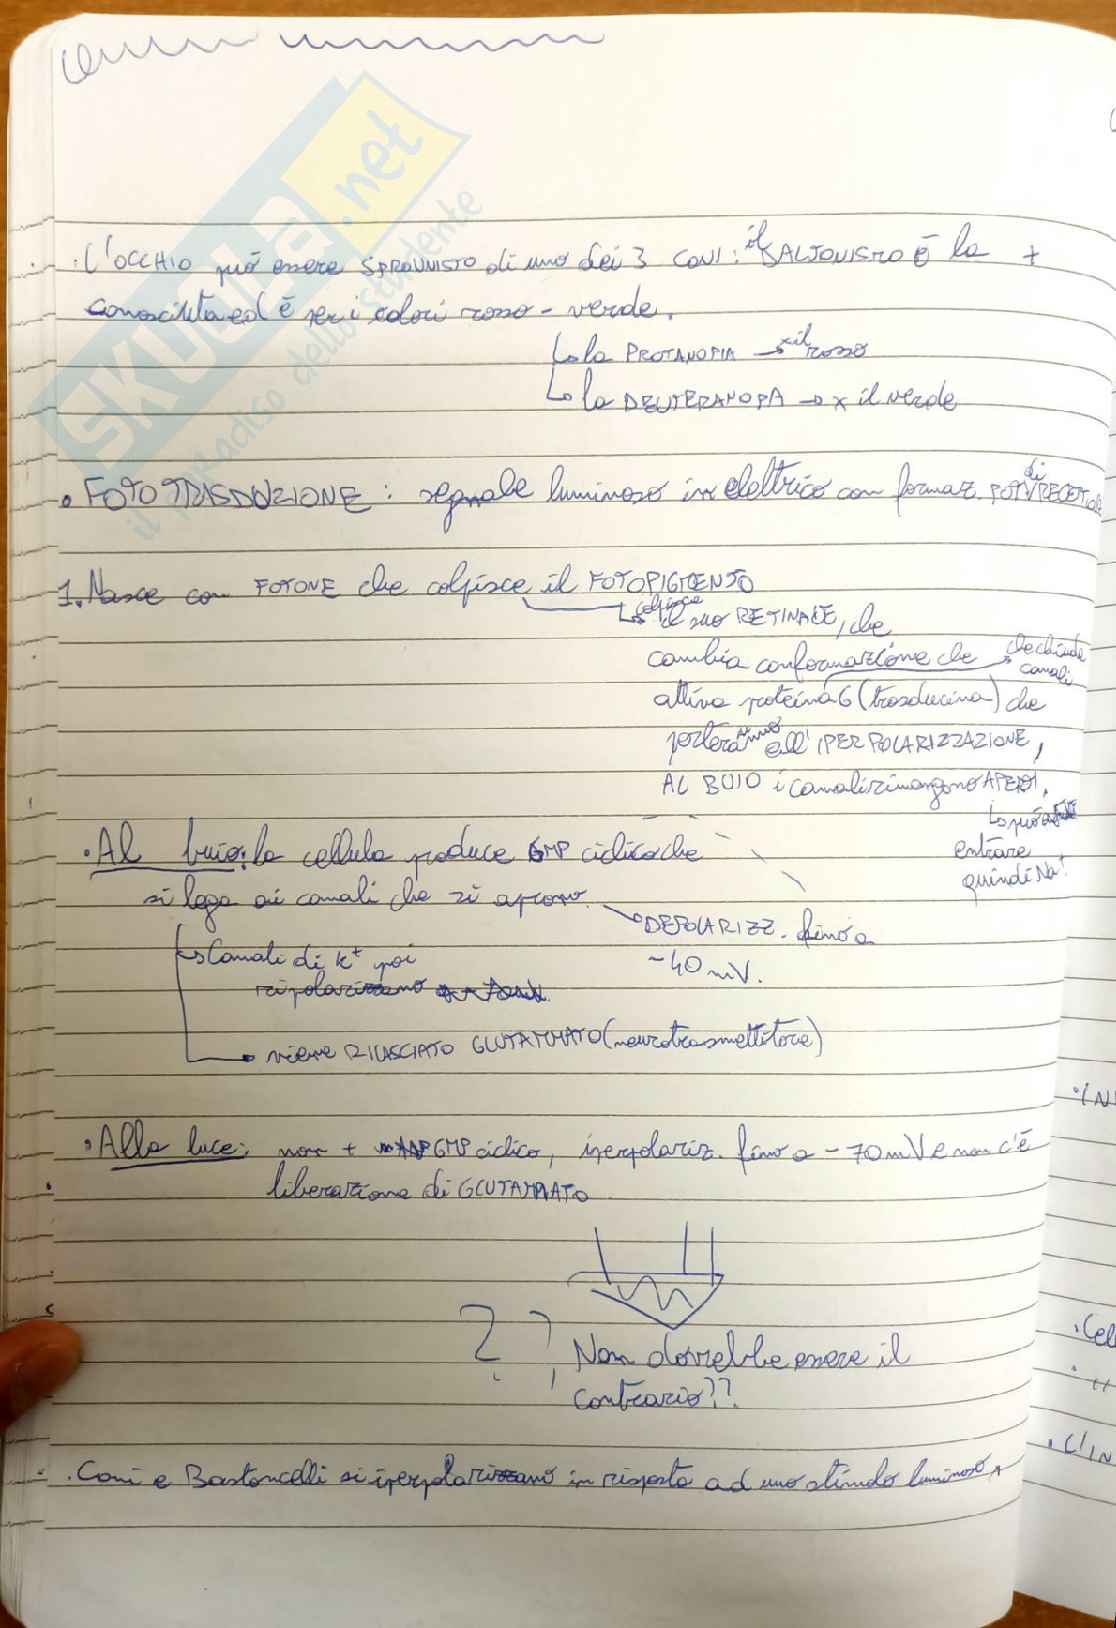 · L'OCCHIO può essere SPROVVISTO di uno dei 3 CONI: il DALTONISMO È la +
conosciuta ed è per i colori rosso - verde.
↳ la PROTANOPIA → x il rosso
↳ la DEUTERANOPA → x il verde
• FOTOTRASDUZIONE: segnale luminoso in elettrico con formaz. di POT. RECET
1. Nasce con FOTONE che colpisce il FOTOPIGMENTO
↳ colpisce il suo RETINALE, che
cambia conformazione che → che chiude canali
attiva proteina G (trasducina) che
porteranno all'IPERPOLARIZZAZIONE,
AL BUIO i canali rimangono APERTI,
↳ può
entrare
quindi Na⁺.
• Al buio: la cellula produce GMP ciclico che
si lega ai canali che si aprono. → DEPOLARIZZ. fino a
-40 mV.
↳ Canali di K⁺ poi
ripolarizzano
→ viene RILASCIATO GLUTAMMATO (neurotrasmettitore)
• Alla luce: non + GMP ciclico, iperpolariz. fino a -70 mV e non c'è
liberazione di GLUTAMMATO
? ? Non dovrebbe essere il
contrario??
· Coni e Bastoncelli si iperpolarizzano in risposta ad uno stimolo luminoso
SKUOLA.net
il paradiso dello studente